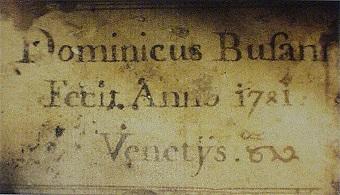 Dominicus Busan
Fecit Anno 1781
Venetijs.